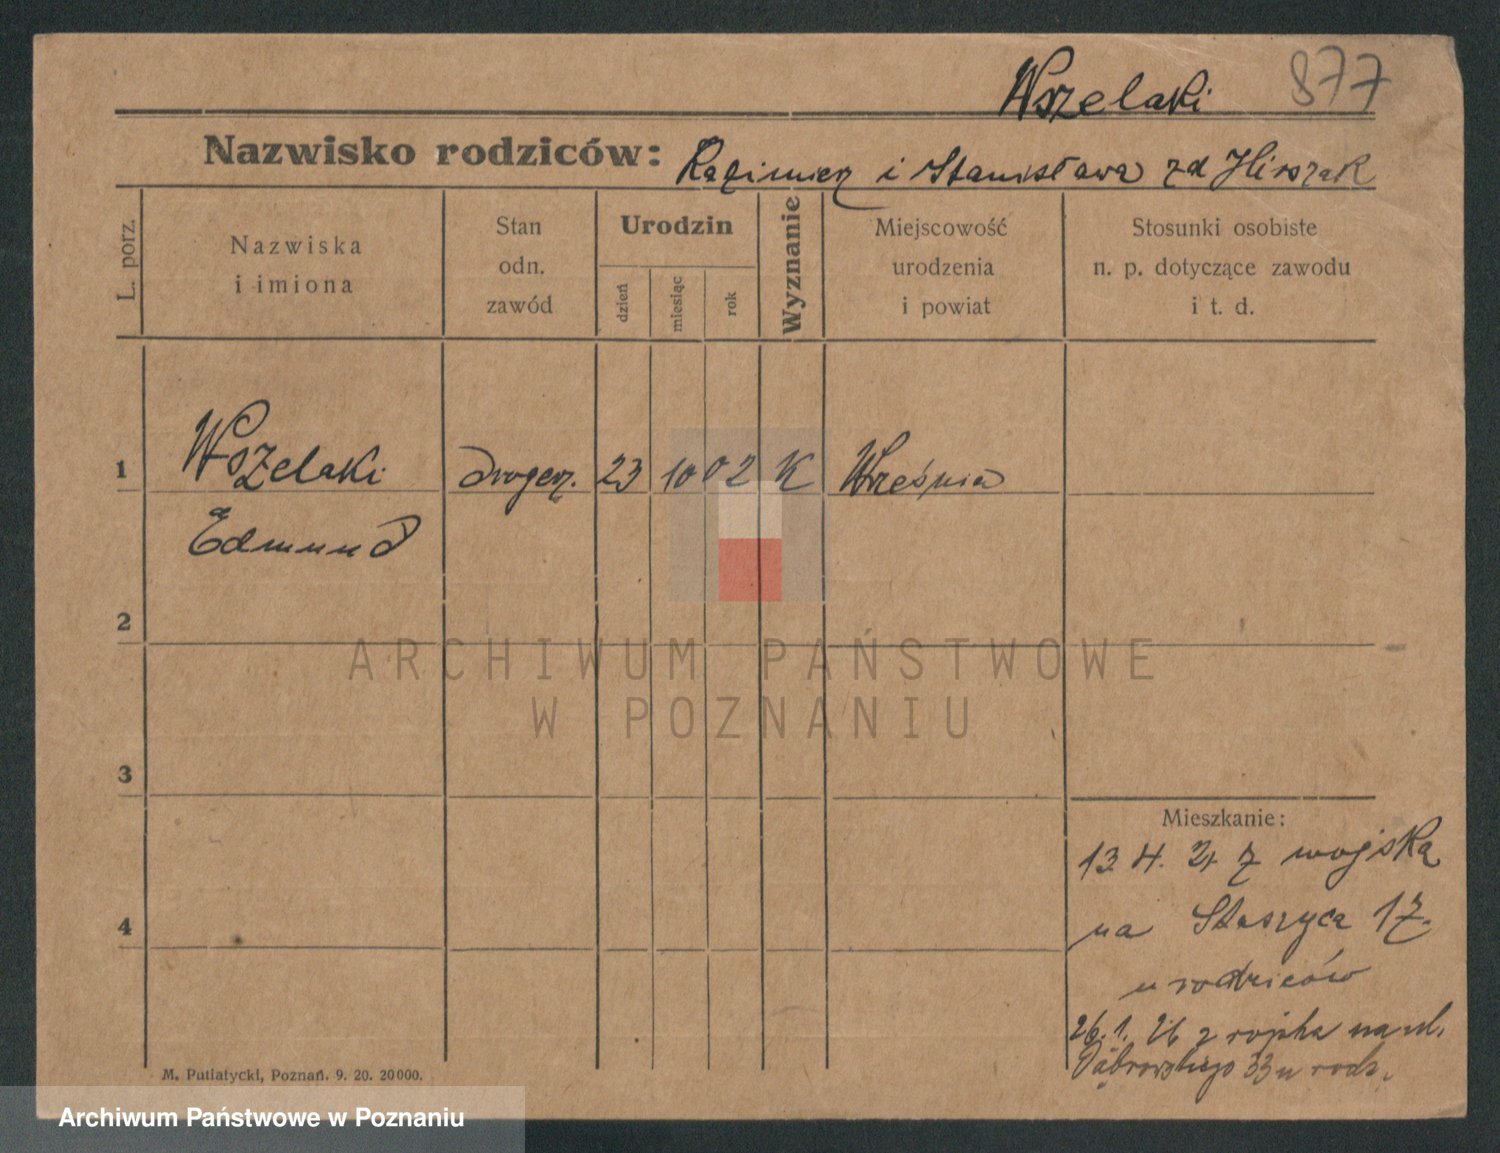 Wszelaki 877
Nazwisko rodziców: Kazimierz i Stanisława zd
L. porz.
Nazwiska
i imiona
Stan
odn.
zawód
Urodzin
dzień
miesiąc
rok
Wyznanie
Miejscowość
urodzenia
i powiat
Stosunki osobiste
n. p. dotyczące zawodu
i t. d.
1 Wszelaki drogerz. 23 10 02 K Września
Edmund
2
3
4
Mieszkanie:
13 4. 24 z wojska
na Staszyca 17.
u rodziców
26. 1. 26 z wojska na ul.
Dąbrowskiego 33 u rodz.
M. Putiatycki, Poznań. 9. 20. 20000.
ARCHIWUM PAŃSTWOWE
W POZNANIU
Archiwum Państwowe w Poznaniu